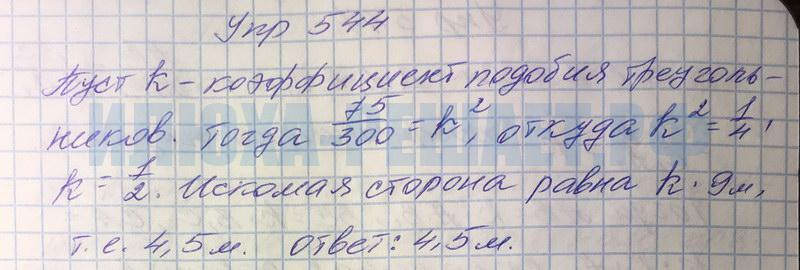 Упр 544
Пуст k - коэффициент подобия треуголь-
ников. Тогда 75/300 = k², откуда k² = 1/4,
k = 1/2. Искомая сторона равна k · 9м,
т.е. 4,5м. Ответ: 4,5м.